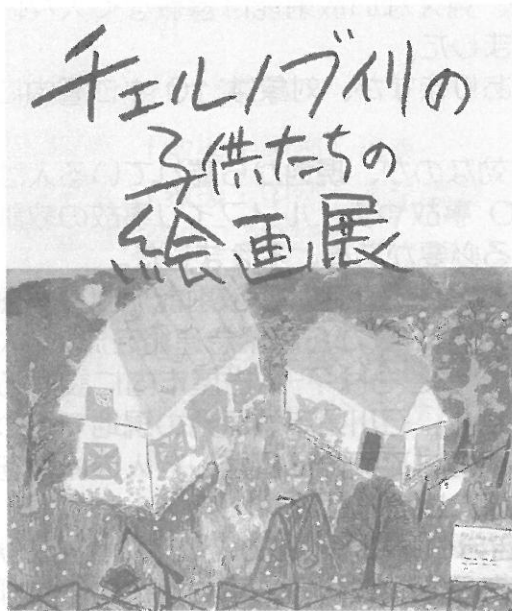 チェルノブイリの
子供たちの
絵画展